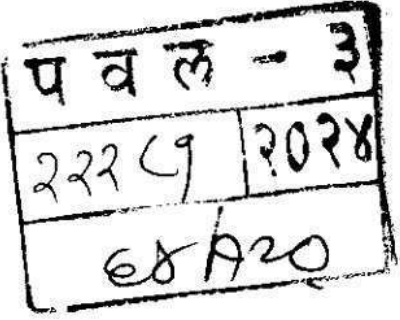 पवल - ३
२२२८१ २०२४
६४/१२०